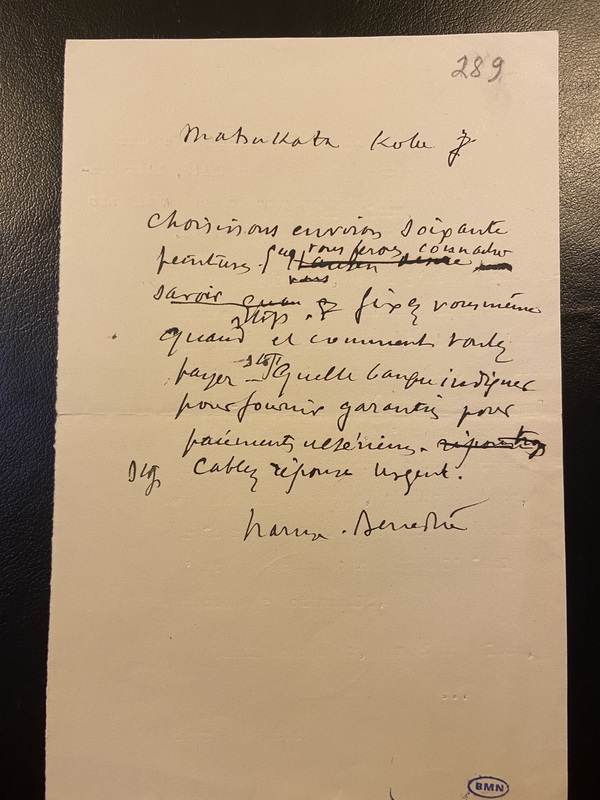 289
Matsukata Kobe
choisissons environ soixante
peintures. vous ferons connaitre
savoir fixez vous même
stop.
quand et comment voulez
stop
payer Quelle banque indiquer
pour fournir garantie pour
paiements ultérieurs.
stop Cablez réponse urgent.
Benedite
BMN